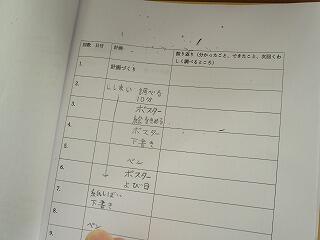 回数 日付 計画 振り返り(分かったこと、できたこと、次回くわしく調べるところ)
1. 計画づくり
2. ししまい 調べる
10分
3. ポスター
絵をきめる
4. ポスター
下書き
5. ペン
6. ポスター
よび日
7. 紙しばい
下書き
8. ペン
9.